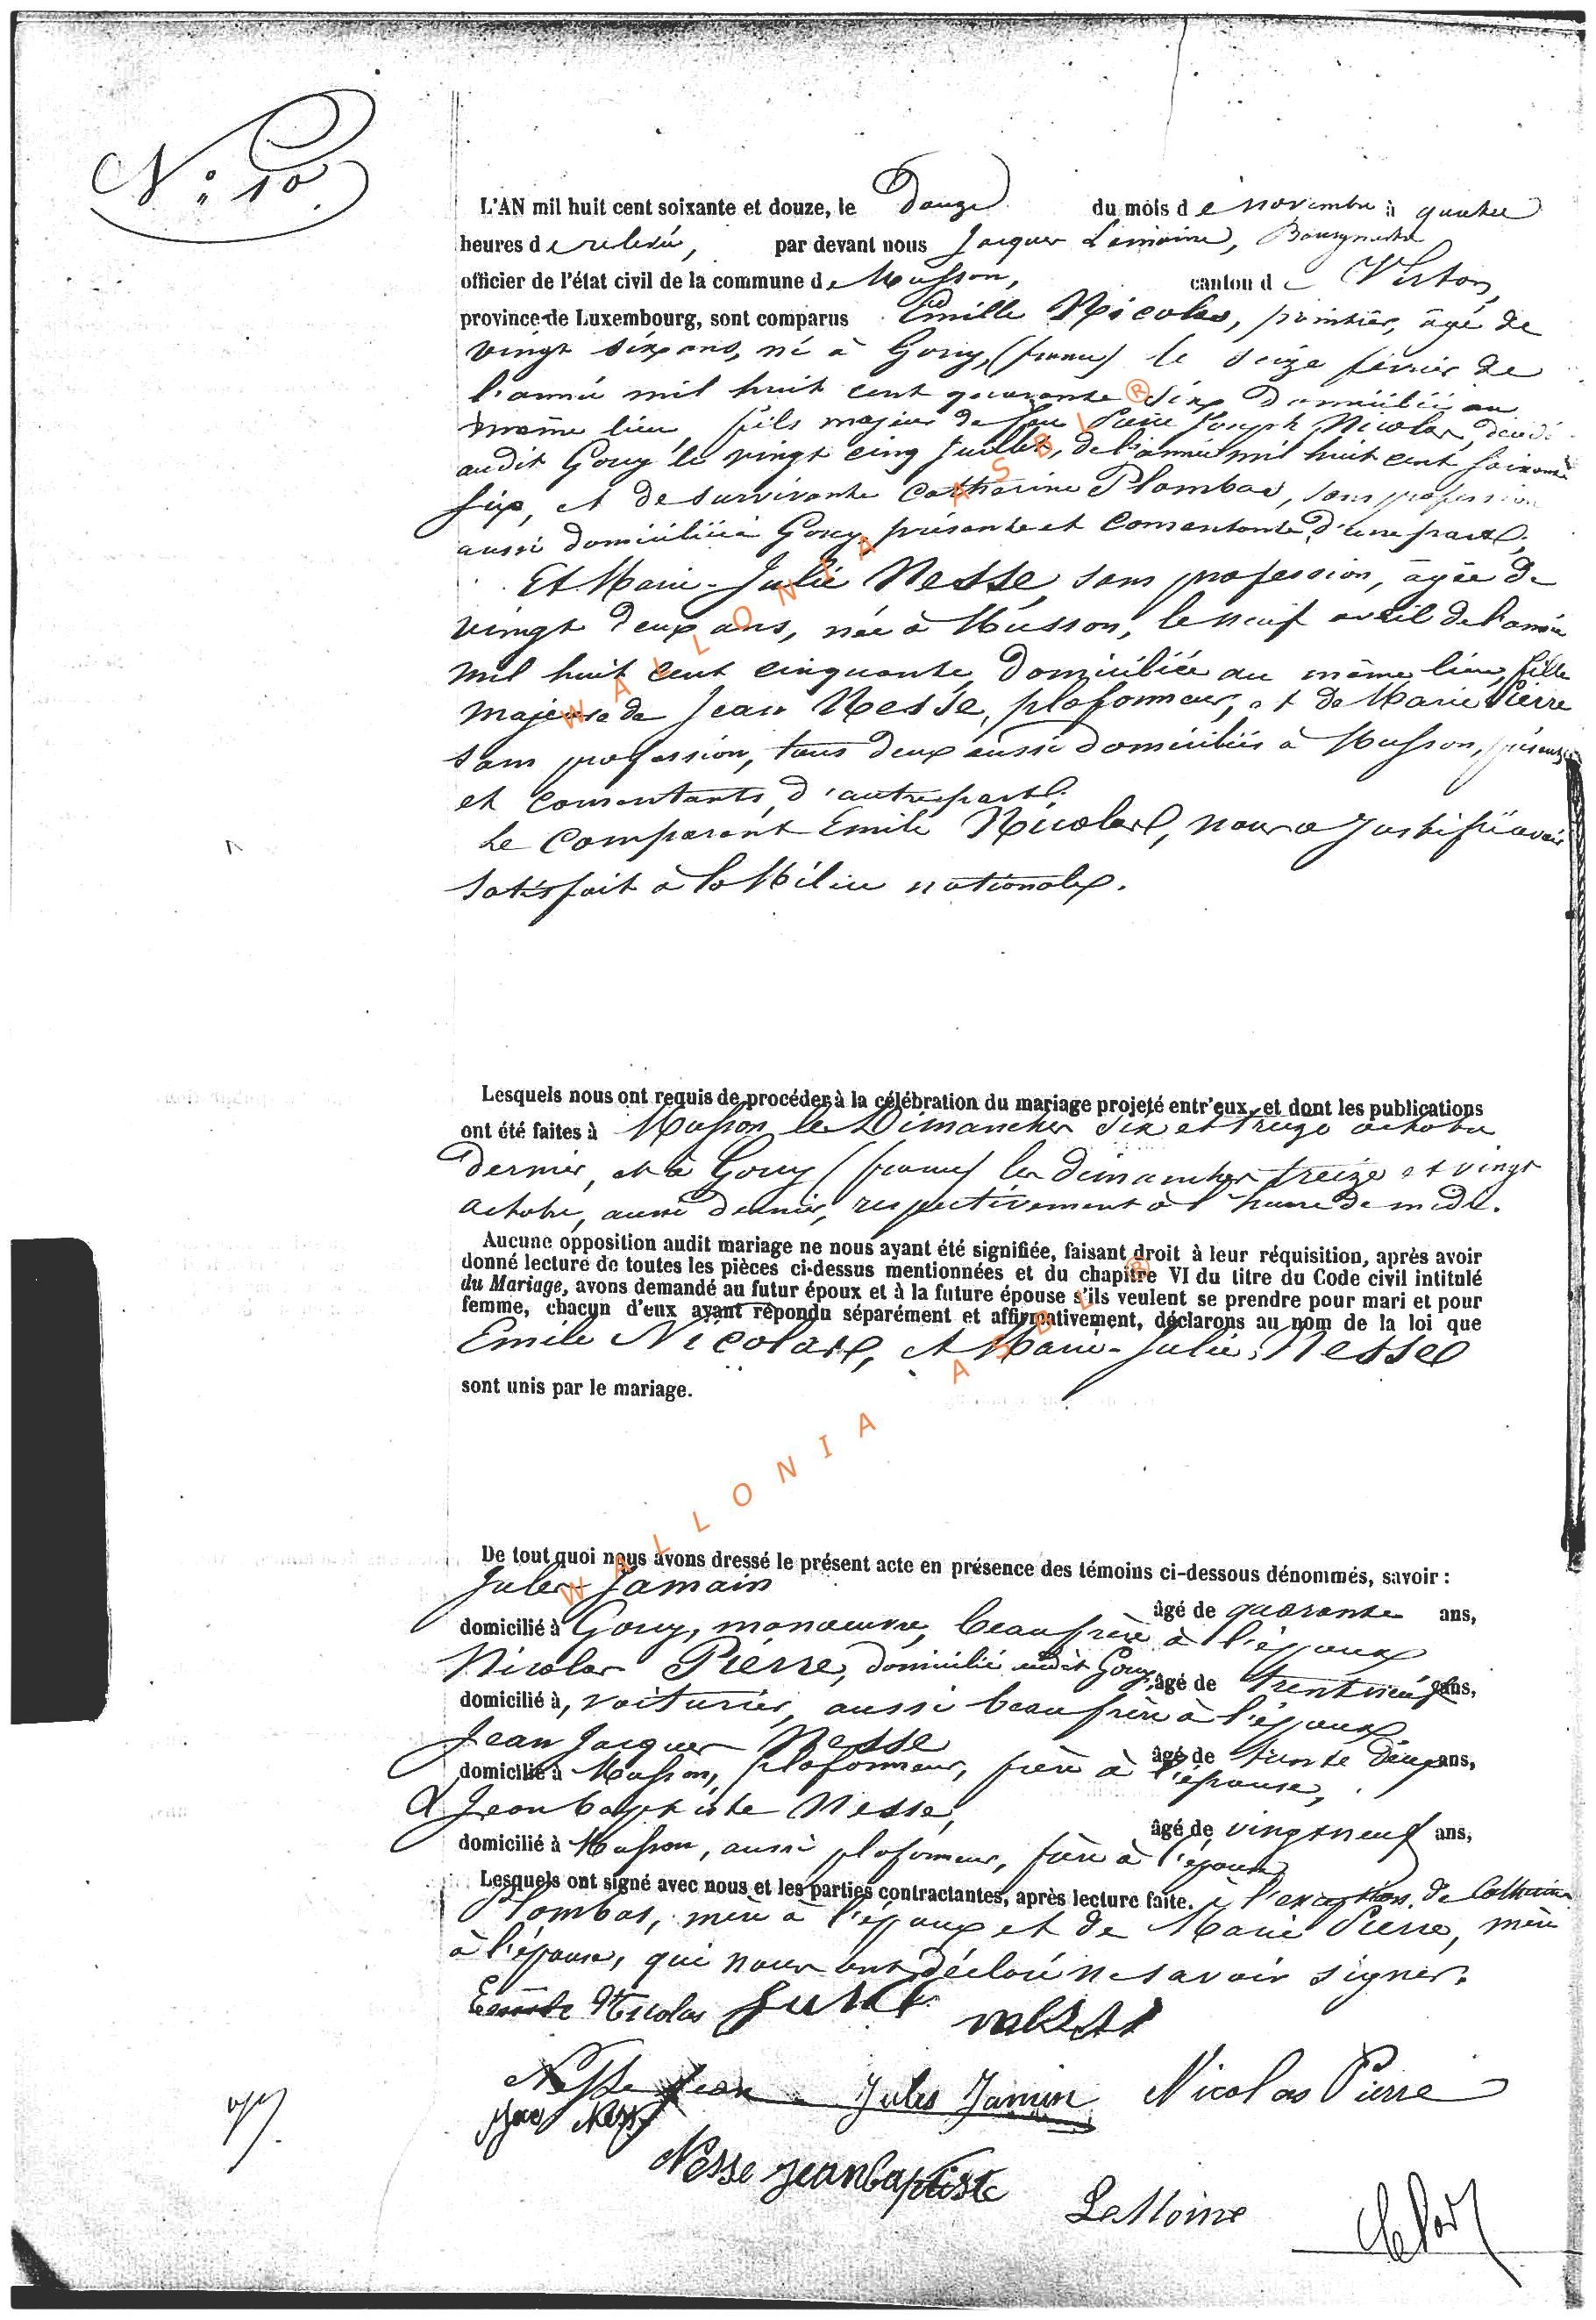 N° 10.
L'AN mil huit cent soixante et douze, le Douze du mois de novembre à quatre
heures de relevée, par devant nous Jacques Lemoine, Bourgmestre
officier de l'état civil de la commune de Musson, canton de Virton,
province de Luxembourg, sont comparus Emille Nicolas, âgé de
vingt six ans, né à Gorcy, (france) le seize février de
l'année mil huit cent quarante six domicilié au
même lieu, fils majeur de feu Pierre Joseph Nicolas, décédé
audit Gorcy le vingt cinq Juillet, de l'année mil huit cent soixante
six, et de survivante Catherine Plombas, sans profession
aussi domiciliée à Gorcy, présente et consentante, d'une part,
Et Marie-Julie Nesse, sans profession, âgée de
vingt deux ans, née à Musson, le neuf avril de l'année
mil huit cent cinquante, domiciliée au même lieu, fille
majeure de Jean Nesse, plafonneur, et de Marie Pierre
sans profession, tous deux aussi domiciliés à Musson, présents
et consentants, d'autre part.
Le comparant Emile Nicolas, nous a justifié avoir
satisfait à la Milice nationale.
Lesquels nous ont requis de procéder à la célébration du mariage projeté entr'eux, et dont les publications
ont été faites à Musson les Dimanches six et treize octobre
dernier, et à Gorcy (france) les dimanches treize et vingt
octobre, aussi dernier, respectivement à l'heure de midi.
Aucune opposition audit mariage ne nous ayant été signifiée, faisant droit à leur réquisition, après avoir
donné lecture de toutes les pièces ci-dessus mentionnées et du chapitre VI du titre du Code civil intitulé
du Mariage, avons demandé au futur époux et à la future épouse s'ils veulent se prendre pour mari et pour
femme, chacun d'eux ayant répondu séparément et affirmativement, déclarons au nom de la loi que
Emile Nicolas, et Marie-Julie Nesse
sont unis par le mariage.
De tout quoi nous avons dressé le présent acte en présence des témoins ci-dessous dénommés, savoir :
Jules Jamain
âgé de quarante ans,
domicilié à Gorcy, manoeuvre, beau frère à l'époux
Nicolas Pierre, domicilié audit Gorcy, âgé de trente neuf ans,
domicilié à, voiturier, aussi beau frère à l'époux
Jean Jacques Nesse âgé de trente deux ans,
domicilié à Musson, plafonneur, frère à l'épouse,
& Jean baptiste Nesse, âgé de vingt neuf ans,
domicilié à Musson, aussi plafonneur, frère à l'épouse
Lesquels ont signé avec nous et les parties contractantes, après lecture faite. à l'exception de Catherine
Plombas, mère à l'époux et de Marie Pierre, mère
à l'épouse, qui nous ont déclaré ne savoir signer.
Emile Nicolas
Nesse Jean Jules Jamin Nicolas Pierre
Nesse jean baptiste
LeMoine
WALLONIA ASBL ®
WALLONIA ASBL ®